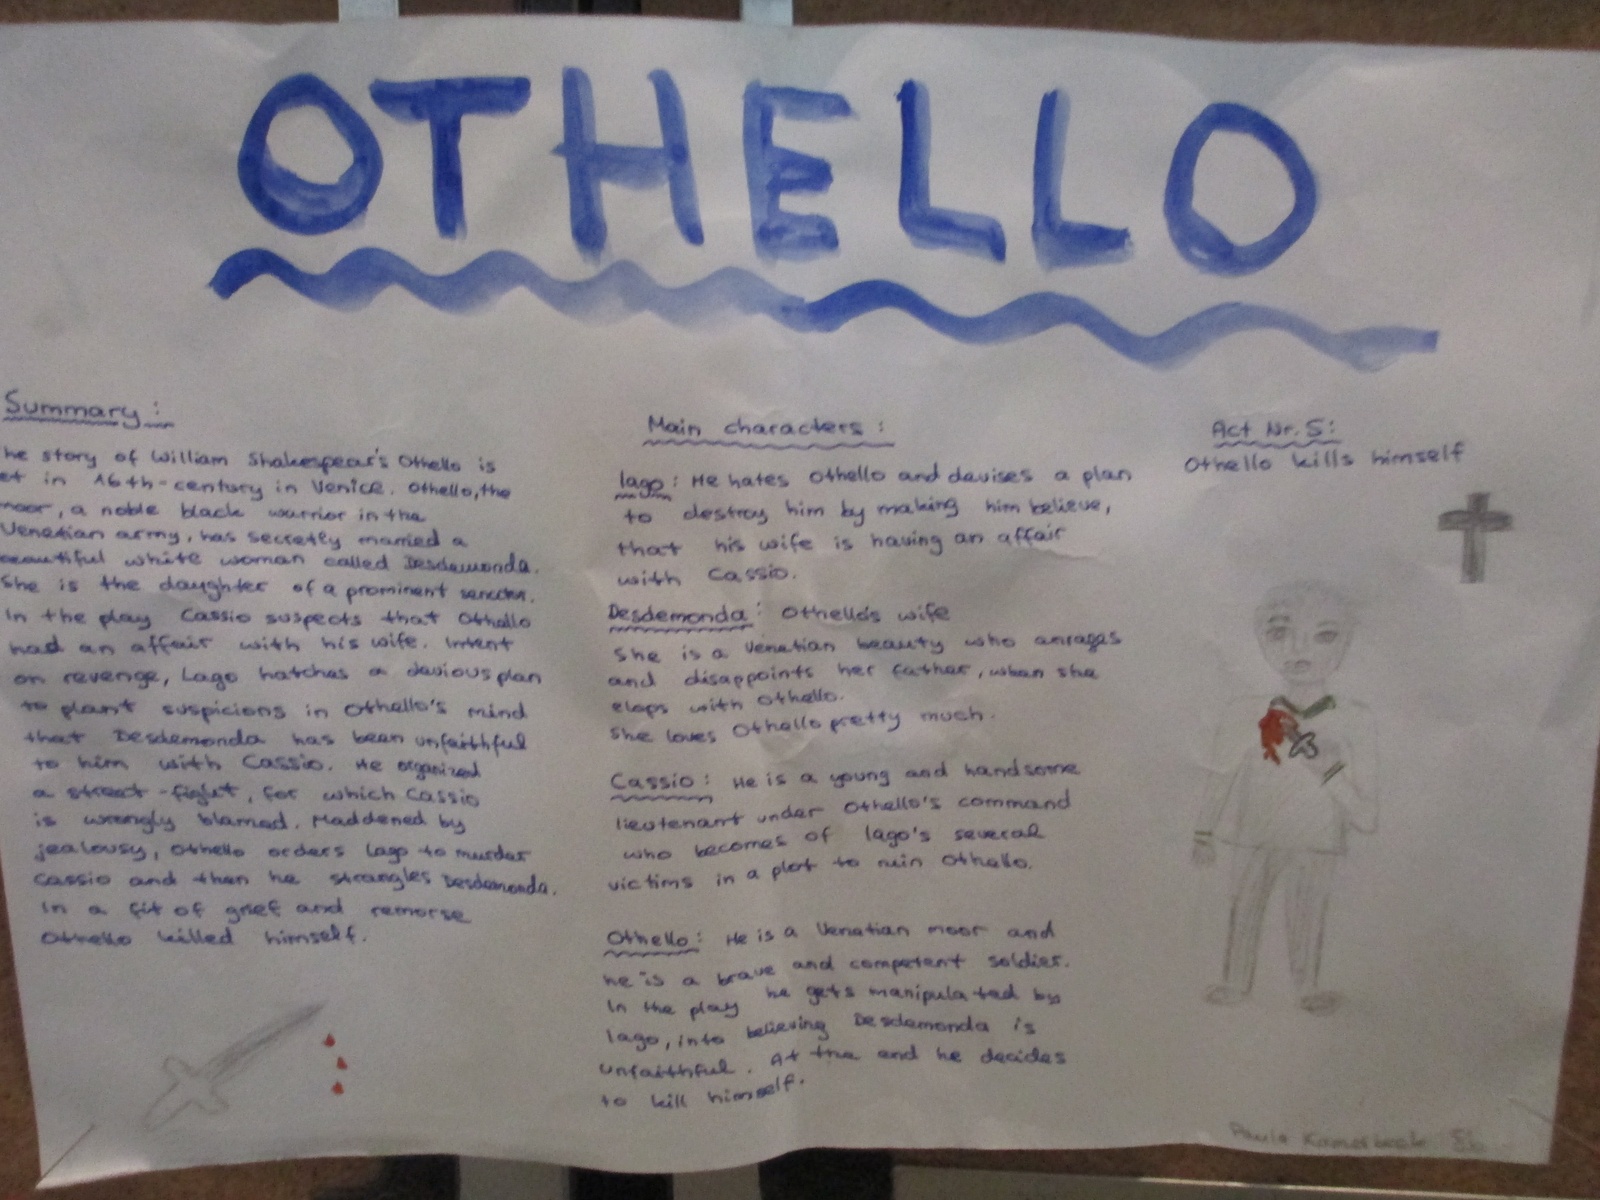 OTHELLO
Summary:
he story of William Shakespear's Othello is
et in 16th-century in Venice. Othello, the
moor, a noble black warrior in the
Venetian army, has secretly married a
beautiful white woman called Desdemonda.
She is the daughter of a prominent senator.
In the play Cassio suspects that Othello
had an affair with his wife. Intent
on revenge, Lago hatches a devious plan
to plant suspicions in Othello's mind
that Desdemonda has been unfaithful
to him with Cassio. He organized
a street-fight, for which Cassio
is wrongly blamed. Maddened by
jealousy, Othello orders Lago to murder
Cassio and then he strangles Desdemonda.
In a fit of grief and remorse
Othello killed himself.
Main characters:
Iago: He hates Othello and davises a plan
to destroy him by making him believe,
that his wife is having an affair
with Cassio.
Desdemonda: Othello's wife
She is a Venetian beauty who enrages
and disappoints her father, when she
elops with Othello.
She loves Othello pretty much.
Cassio: He is a young and handsome
lieutenant under Othello's command
who becomes of Iago's several
victims in a plot to ruin Othello.
Othello: He is a Venetian moor and
he is a brave and competent soldier.
In the play he gets manipulated by
Iago, into believing Desdemonda is
unfaithful. At the end he decides
to kill himself.
Act Nr. 5:
Othello kills himself
Paula